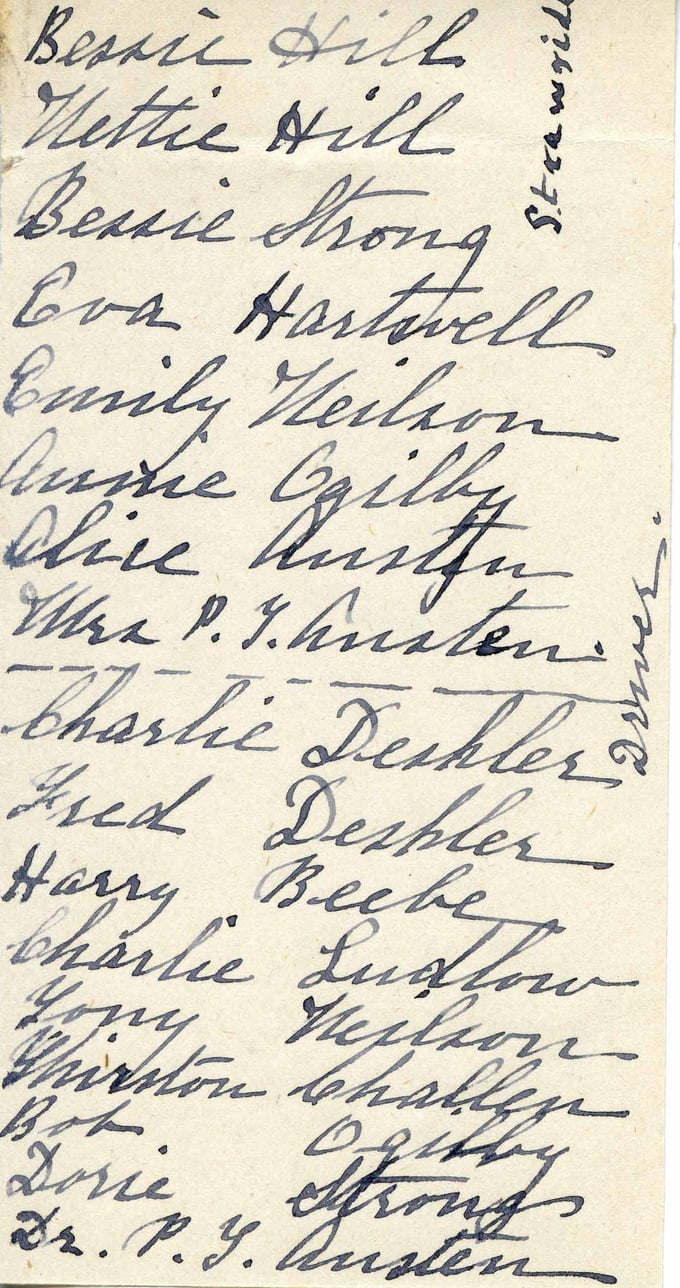 Bessie Hill
Nettie Hill
Bessie Strong
Eva Hartwell
Emily Neilson
Annie Ogilby
Alice Austen
Mrs P. T. Austen.
Charlie Deshler
Fred Deshler
Harry Beebe
Charlie Ludlow
Tony Neilson
Thurston Challen
Bob Ogilby
Dorie Strong
Dr. P. T. Austen
Strawride
Driver.